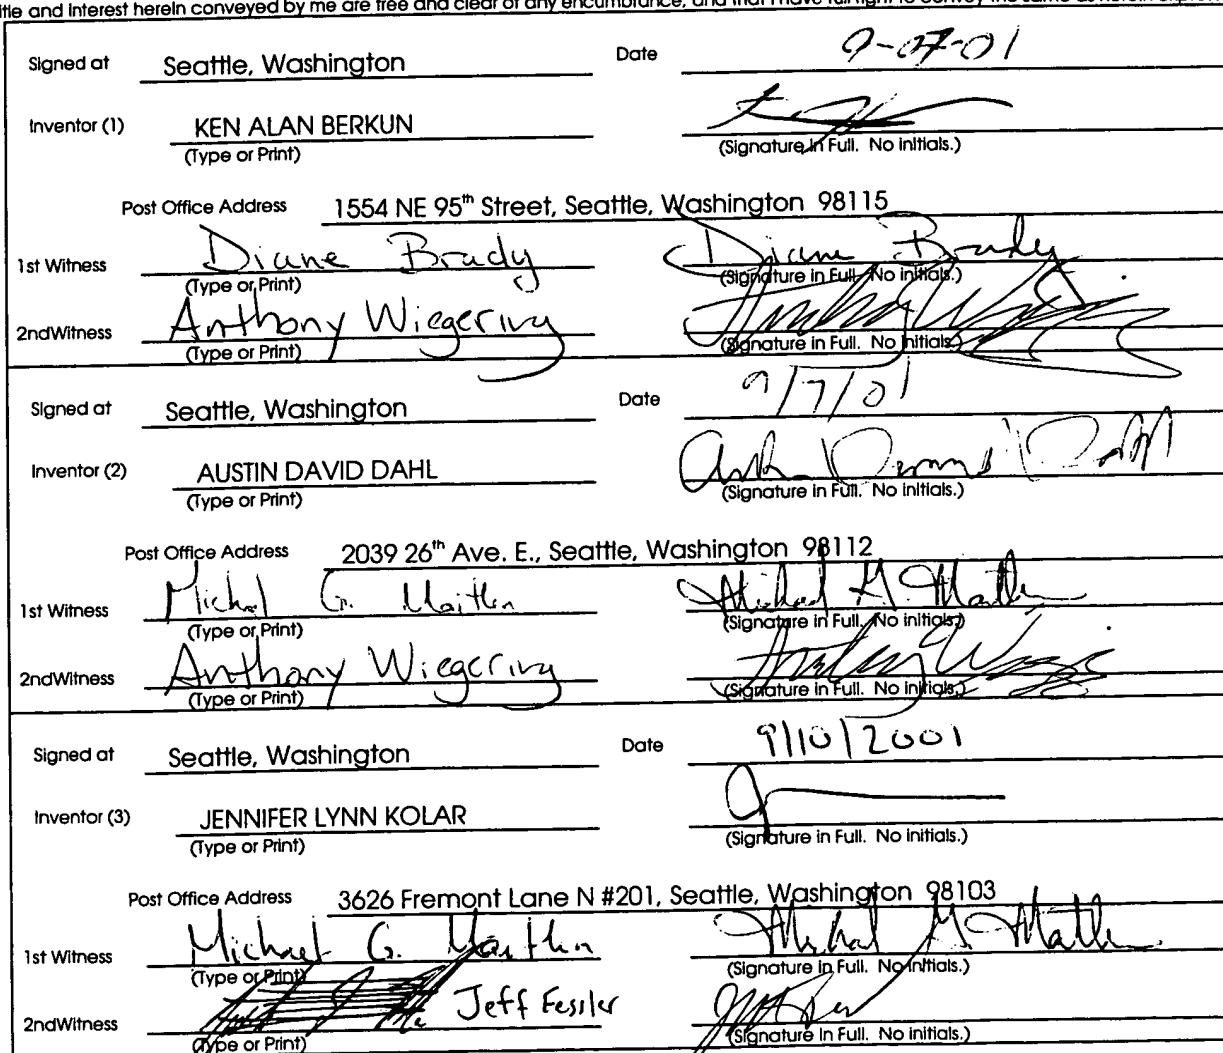 title and interest herein conveyed by me are free and clear of any encumbrance, and that I have full right to convey the same as herein
Signed at Seattle, Washington Date 9-07-01
Inventor (1) KEN ALAN BERKUN
(Type or Print) (Signature in Full. No initials.)
Post Office Address 1554 NE 95th Street, Seattle, Washington 98115
1st Witness Diane Brady Diane Brady
(Type or Print) (Signature in Full. No initials.)
2ndWitness Anthony Wiegering
(Type or Print) (Signature in Full. No initials.)
Signed at Seattle, Washington Date 9/7/01
Inventor (2) AUSTIN DAVID DAHL
(Type or Print) (Signature in Full. No initials.)
Post Office Address 2039 26th Ave. E., Seattle, Washington 98112
1st Witness Michael G.
(Type or Print) (Signature in Full. No initials.)
2ndWitness Anthony Wiegering
(Type or Print) (Signature in Full. No initials.)
Signed at Seattle, Washington Date 9/10/2001
Inventor (3) JENNIFER LYNN KOLAR
(Type or Print) (Signature in Full. No initials.)
Post Office Address 3626 Fremont Lane N #201, Seattle, Washington 98103
1st Witness Michael G.
(Type or Print) (Signature in Full. No initials.)
2ndWitness Jeff Fessler
(Type or Print) (Signature in Full. No initials.)